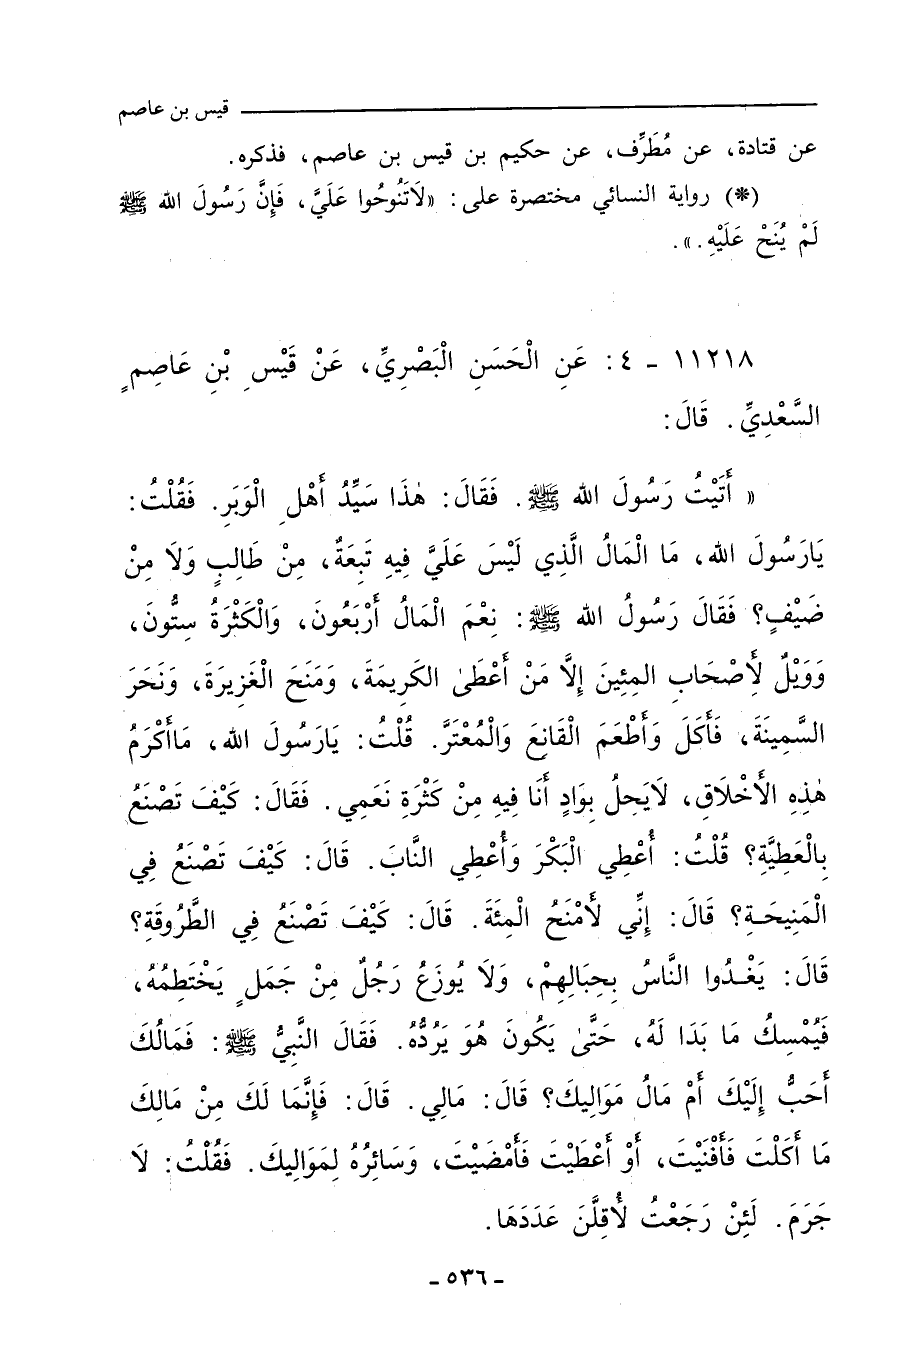 قيس بن عاصم
عن قتادة، عن مُطَرِّف، عن حكيم بن قيس بن عاصم، فذكره.
(*) رواية النسائي مختصرة على: «لَاتَنُوحُوا عَلَيَّ، فَإِنَّ رَسُولَ الله ﷺ
لَمْ يُنَحْ عَلَيْهِ.».
١١٢١٨ - ٤: عَنِ الْحَسَنِ الْبَصْرِيِّ، عَنْ قَيْسِ بْنِ عَاصِمٍ
السَّعْدِيِّ. قَالَ:
« أَتَيْتُ رَسُولَ الله ﷺ. فَقَالَ: هٰذَا سَيِّدُ أَهْلِ الْوَبَرِ. فَقُلْتُ:
يَارَسُولَ الله، مَا الْمَالُ الَّذِي لَيْسَ عَلَيَّ فِيهِ تَبِعَةٌ، مِنْ طَالِبٍ وَلَا مِنْ
ضَيْفٍ؟ فَقَالَ رَسُولُ الله ﷺ: نِعْمَ الْمَالُ أَرْبَعُونَ، وَالْكَثْرَةُ سِتُّونَ،
وَوَيْلٌ لِأَصْحَابِ المِئِينَ إِلَّا مَنْ أَعْطَىٰ الكَرِيمَةَ، وَمَنَحَ الْغَزِيرَةَ، وَنَحَرَ
السَّمِينَةَ، فَأَكَلَ وَأَطْعَمَ الْقَانِعَ وَالْمُعْتَرَّ. قُلْتُ: يَارَسُولَ الله، مَاأَكْرَمُ
هٰذِهِ الأَخْلَاقِ، لَايَحِلُ بِوَادٍ أَنَا فِيهِ مِنْ كَثْرَةِ نَعَمِي. فَقَالَ: كَيْفَ تَصْنَعُ
بِالْعَطِيَّةِ؟ قُلْتُ: أُعْطِي الْبَكْرَ وَأُعْطِي النَّابَ. قَالَ: كَيْفَ تَصْنَعُ فِي
الْمَنِيحَةِ؟ قَالَ: إِنِّي لَأَمْنَحُ الْمِئَةَ. قَالَ: كَيْفَ تَصْنَعُ فِي الطَّرُوقَةِ؟
قَالَ: يَغْدُوا النَّاسُ بِحِبَالِهِمْ، وَلَا يُوزَعُ رَجُلٌ مِنْ جَمَلٍ يَخْتَطِمُهُ،
فَيُمْسِكُ مَا بَدَا لَهُ، حَتَّىٰ يَكُونَ هُوَ يَرُدُّهُ. فَقَالَ النَّبِيُّ ﷺ: فَمَالُكَ
أَحَبُّ إِلَيْكَ أَمْ مَالُ مَوَالِيكَ؟ قَالَ: مَالِي. قَالَ: فَإِنَّمَا لَكَ مِنْ مَالِكَ
مَا أَكَلْتَ فَأَفْنَيْتَ، أَوْ أَعْطَيْتَ فَأَمْضَيْتَ، وَسَائِرُهُ لِمَوَالِيكَ. فَقُلْتُ: لَا
جَرَمَ. لَئِنْ رَجَعْتُ لَأُقِلَّنَ عَدَدَهَا.
- ٥٣٦ -